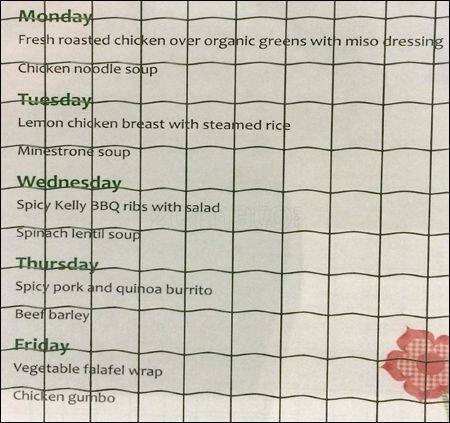 Monday
Fresh roasted chicken over organic greens with miso dressing
Chicken noodle soup
Tuesday
Lemon chicken breast with steamed rice
Minestrone soup
Wednesday
Spicy Kelly BBQ ribs with salad
Spinach lentil soup
Thursday
Spicy pork and quinoa burrito
Beef barley
Friday
Vegetable falafel wrap
Chicken gumbo